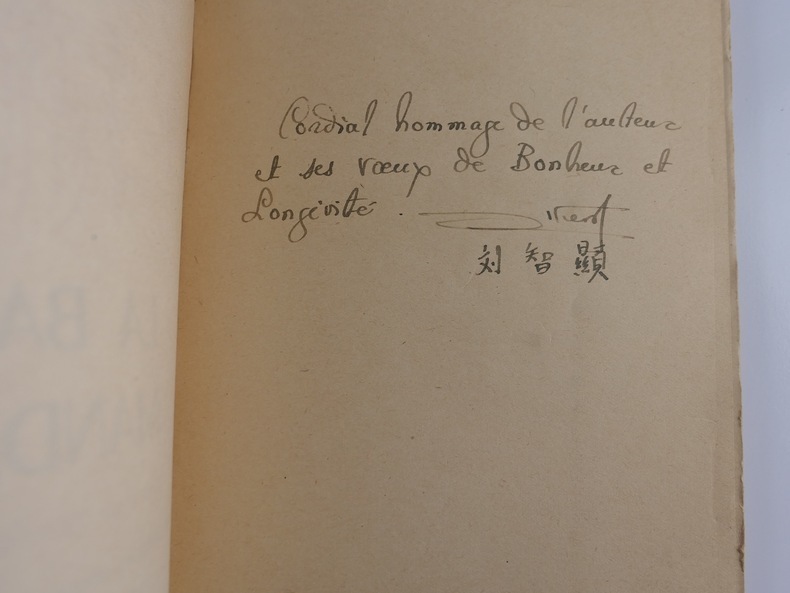 Cordial hommage de l'auteur
et ses vœux de Bonheur et
Longévité.
刘智顯